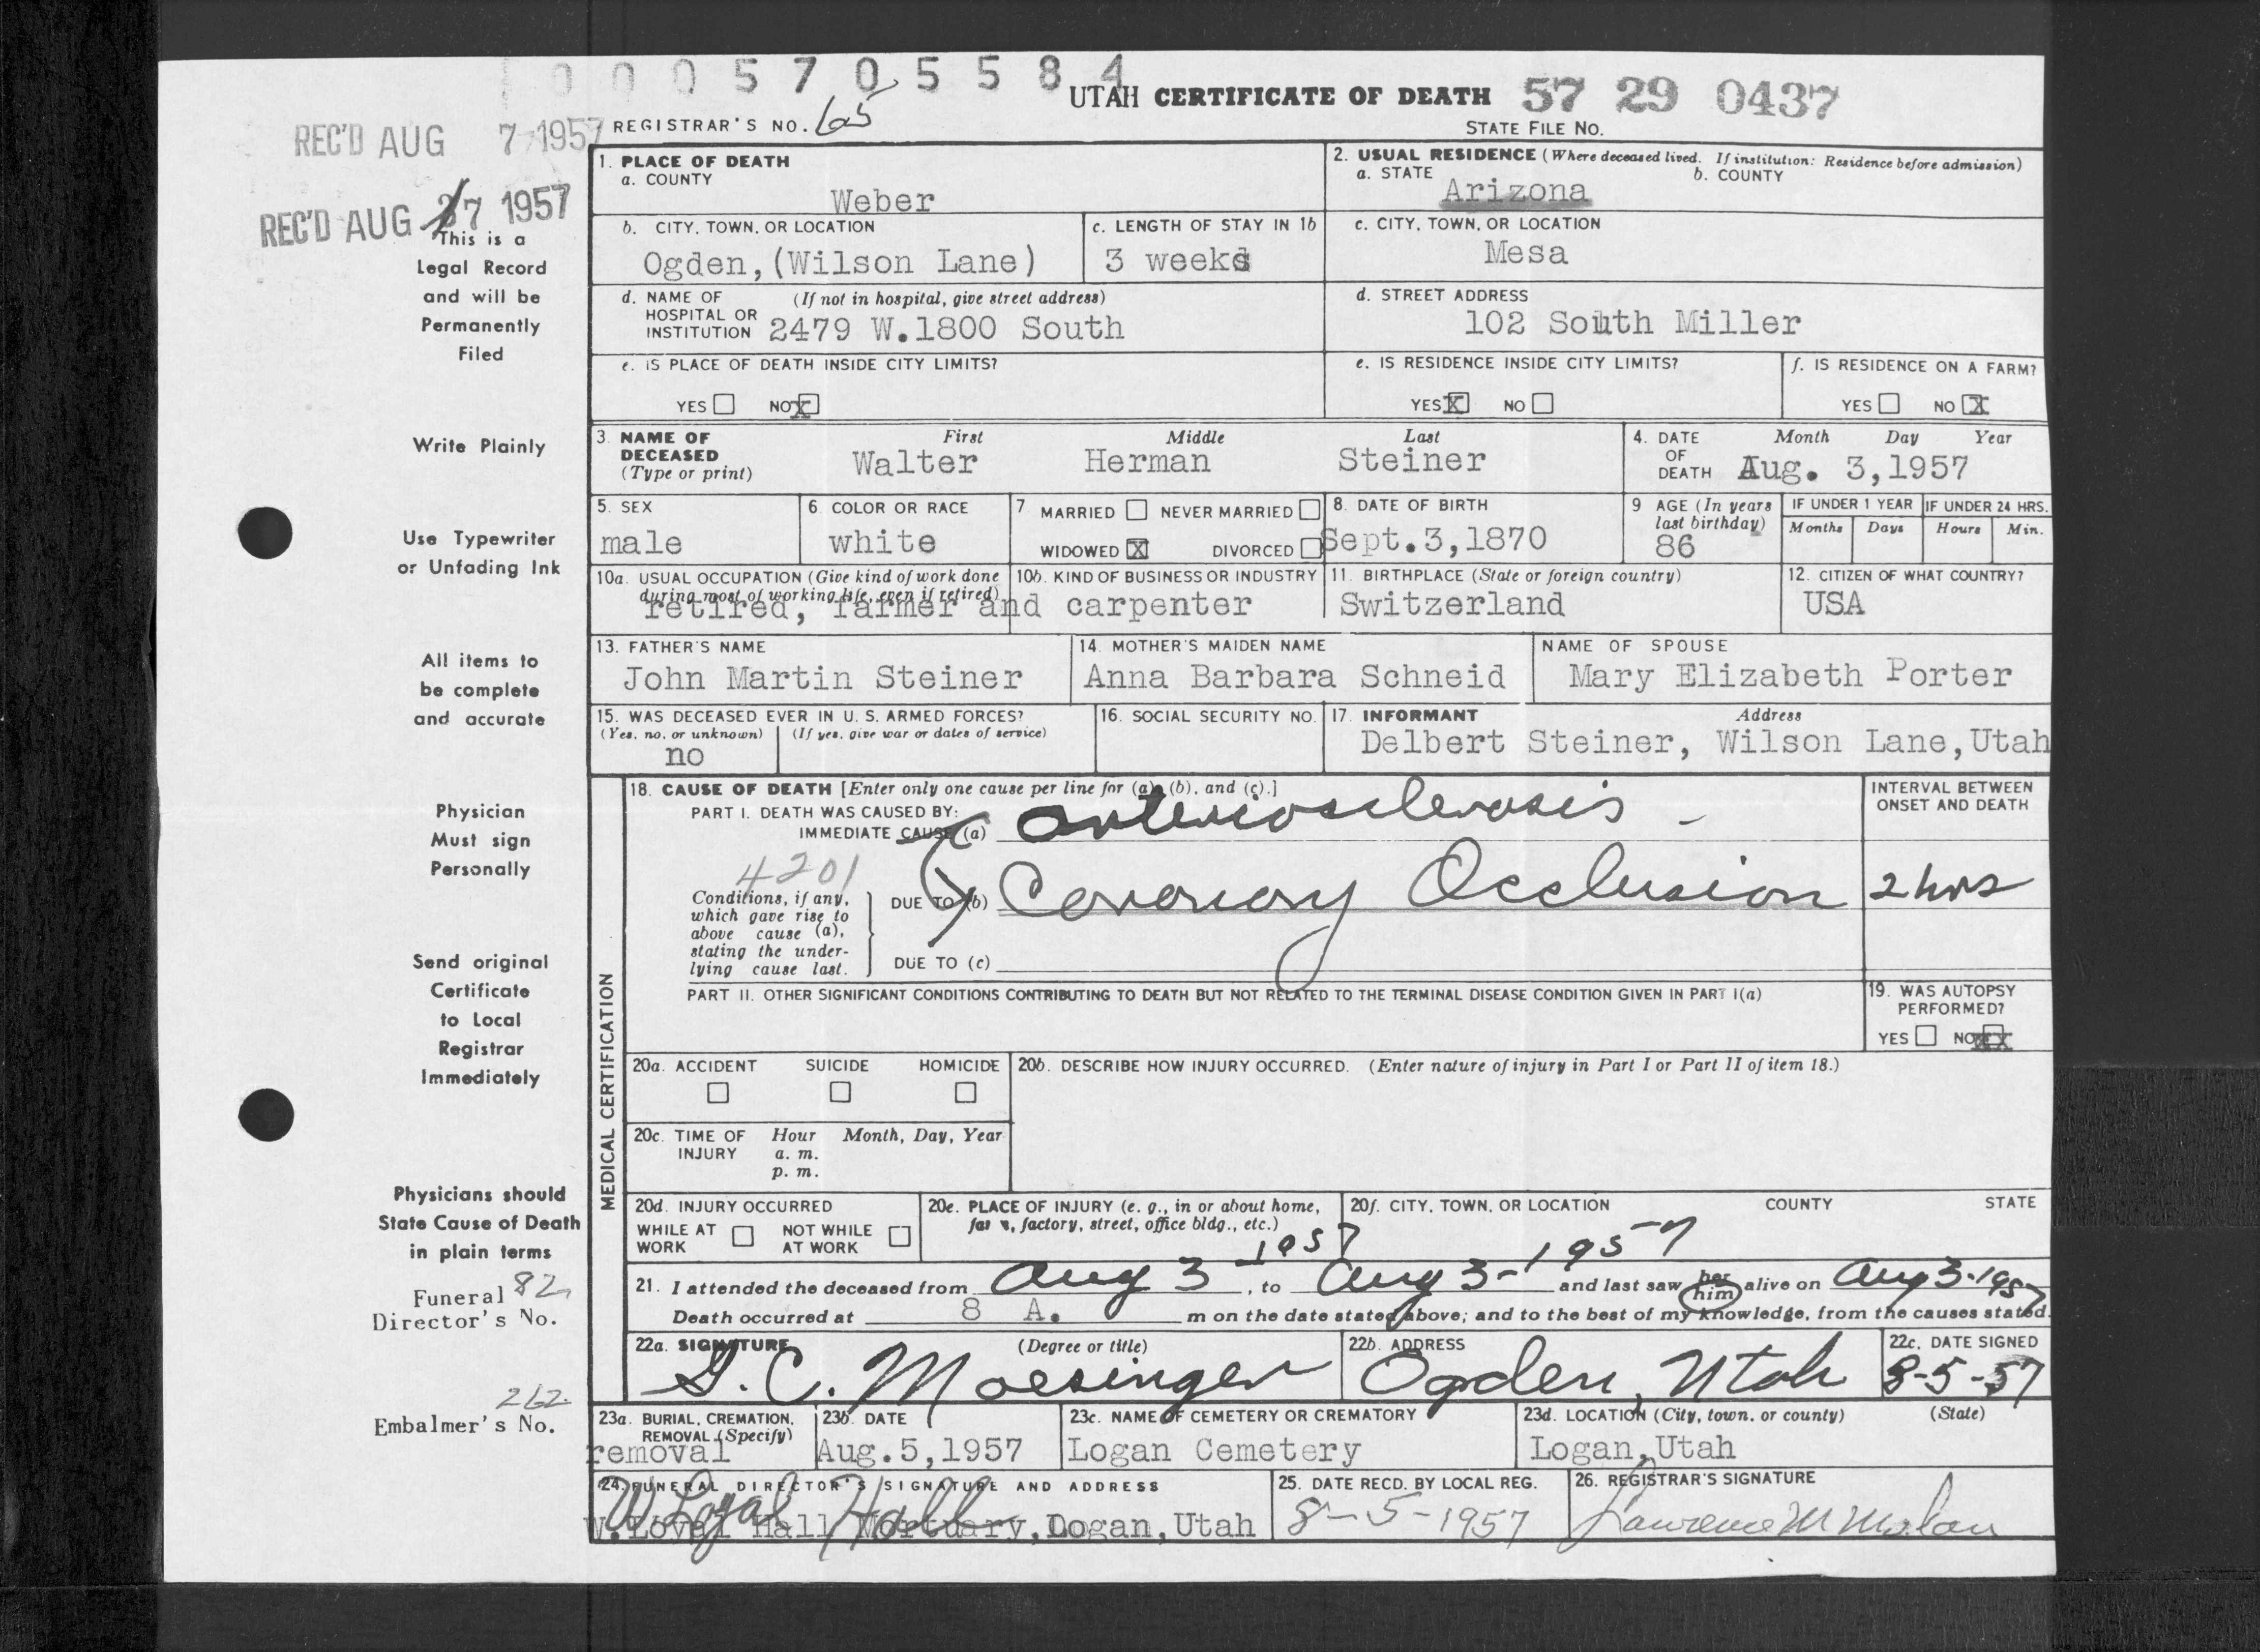 0 0 0 5 7 0 5 5 8 4
UTAH CERTIFICATE OF DEATH 57 29 0437
REGISTRAR'S NO. STATE FILE NO.
REC'D AUG 7 1957
REC'D AUG 27 1957
This is a
Legal Record
and will be
Permanently
Filed
Write Plainly
Use Typewriter
or Unfading Ink
All items to
be complete
and accurate
Physician
Must sign
Personally
Send original
Certificate
to Local
Registrar
Immediately
Physicians should
State Cause of Death
in plain terms
Funeral 82
Director's No.
262
Embalmer's No.
1. PLACE OF DEATH
a. COUNTY
Weber
2. USUAL RESIDENCE (Where deceased lived. If institution: Residence before admission)
a. STATE b. COUNTY
Arizona
b. CITY, TOWN, OR LOCATION
Ogden, (Wilson Lane)
c. LENGTH OF STAY IN 1b
3 weeks
c. CITY, TOWN, OR LOCATION
Mesa
d. NAME OF (If not in hospital, give street address)
HOSPITAL OR
INSTITUTION 2479 W.1800 South
d. STREET ADDRESS
102 South Miller
e. IS PLACE OF DEATH INSIDE CITY LIMITS?
YES NO X
e. IS RESIDENCE INSIDE CITY LIMITS?
YES X NO
f. IS RESIDENCE ON A FARM?
YES NO X
3. NAME OF First Middle Last
DECEASED
(Type or print) Walter Herman Steiner
4. DATE Month Day Year
OF
DEATH Aug. 3,1957
5. SEX
male
6 COLOR OR RACE
white
7 MARRIED NEVER MARRIED
WIDOWED X DIVORCED
8. DATE OF BIRTH
Sept.3,1870
9 AGE (In years
last birthday)
86
IF UNDER 1 YEAR IF UNDER 24 HRS.
Months Days Hours Min.
10a. USUAL OCCUPATION (Give kind of work done
during most of working life, even if retired)
10b. KIND OF BUSINESS OR INDUSTRY
retired, farmer and carpenter
11. BIRTHPLACE (State or foreign country)
Switzerland
12. CITIZEN OF WHAT COUNTRY?
USA
13. FATHER'S NAME
John Martin Steiner
14. MOTHER'S MAIDEN NAME
Anna Barbara Schneid
NAME OF SPOUSE
Mary Elizabeth Porter
15. WAS DECEASED EVER IN U. S. ARMED FORCES?
(Yes, no, or unknown) (If yes, give war or dates of service)
no
16. SOCIAL SECURITY NO.
17. INFORMANT Address
Delbert Steiner, Wilson Lane,Utah
MEDICAL CERTIFICATION
18. CAUSE OF DEATH [Enter only one cause per line for (a), (b), and (c).]
PART I. DEATH WAS CAUSED BY:
IMMEDIATE CAUSE (a) Arteriosclerosis -
INTERVAL BETWEEN
ONSET AND DEATH
4201
Conditions, if any,
which gave rise to
above cause (a),
stating the under-
lying cause last.
DUE TO (b) Coronary Occlusion 2 hrs
DUE TO (c)
PART II. OTHER SIGNIFICANT CONDITIONS CONTRIBUTING TO DEATH BUT NOT RELATED TO THE TERMINAL DISEASE CONDITION GIVEN IN PART I(a)
19. WAS AUTOPSY
PERFORMED?
YES NO XX
20a. ACCIDENT SUICIDE HOMICIDE
20b. DESCRIBE HOW INJURY OCCURRED. (Enter nature of injury in Part I or Part II of item 18.)
20c. TIME OF Hour Month, Day, Year
INJURY a. m.
p. m.
20d. INJURY OCCURRED
WHILE AT NOT WHILE
WORK AT WORK
20e. PLACE OF INJURY (e. g., in or about home,
farm, factory, street, office bldg., etc.)
20f. CITY, TOWN, OR LOCATION COUNTY STATE
21. I attended the deceased from Aug 3 -1957, to Aug 3 - 1957 and last saw her him alive on Aug 3-1957
Death occurred at 8 A. m on the date stated above; and to the best of my knowledge, from the causes stated.
22a. SIGNATURE (Degree or title)
G. C. Moesinger
22b. ADDRESS
Ogden, Utah
22c. DATE SIGNED
8-5-57
23a. BURIAL, CREMATION,
REMOVAL (Specify)
removal
23b. DATE
Aug.5,1957
23c. NAME OF CEMETERY OR CREMATORY
Logan Cemetery
23d. LOCATION (City, town, or county) (State)
Logan,Utah
24. FUNERAL DIRECTOR'S SIGNATURE AND ADDRESS
W. Loyal Hall
W.Loyal Hall Mortuary,Logan,Utah
25. DATE RECD. BY LOCAL REG.
8-5-1957
26. REGISTRAR'S SIGNATURE
Lawrence M Malan